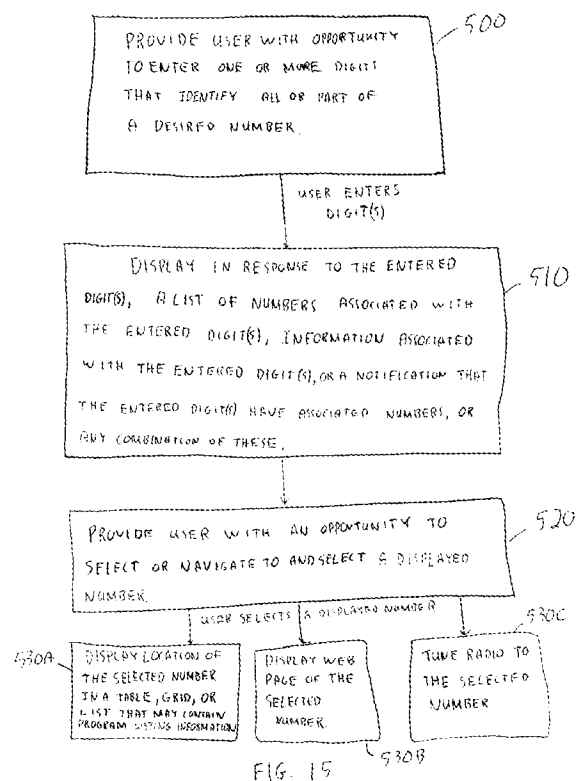 PROVIDE USER WITH OPPORTUNITY
TO ENTER ONE OR MORE DIGITS
THAT IDENTIFY ALL OR PART OF
A DESIRED NUMBER.
500
USER ENTERS
DIGIT(S)
DISPLAY IN RESPONSE TO THE ENTERED
DIGIT(S), A LIST OF NUMBERS ASSOCIATED WITH
THE ENTERED DIGIT(S), INFORMATION ASSOCIATED
WITH THE ENTERED DIGIT(S), OR A NOTIFICATION THAT
THE ENTERED DIGIT(S) HAVE ASSOCIATED NUMBERS, OR
ANY COMBINATION OF THESE.
510
PROVIDE USER WITH AN OPPORTUNITY TO
SELECT OR NAVIGATE TO AND SELECT A DISPLAYED
NUMBER.
520
USER SELECTS A DISPLAYED NUMBER
530A
DISPLAY LOCATION OF
THE SELECTED NUMBER
IN A TABLE, GRID, OR
LIST THAT MAY CONTAIN
PROGRAM LISTING INFORMATION
DISPLAY WEB
PAGE OF THE
SELECTED
NUMBER.
530B
530C
TUNE RADIO TO
THE SELECTED
NUMBER
FIG. 15